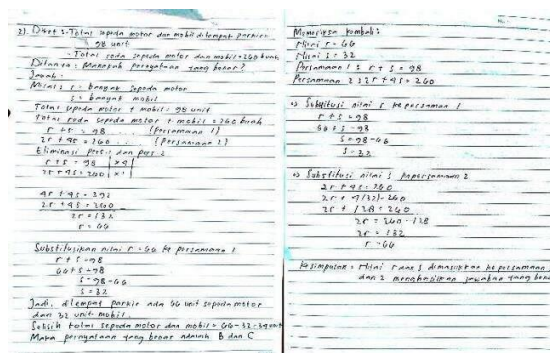 2). Diket :- Total sepeda motor dan mobil ditempat parkir
98 unit
- Total roda sepeda motor dan mobil = 260 buah
Ditanya : Manakah pernyataan yang benar?
Jawab :
Misal : r = banyak sepeda motor
s = banyak mobil
Total sepeda motor + mobil = 98 unit
Total roda sepeda motor + mobil = 260 buah
r + s = 98 .... (Persamaan 1)
2r + 4s = 260 .... (Persamaan 2)
Eliminasi pers. 1 dan pers 2
r + s = 98 | x 4 |
2r + 4s = 260 | x 1 |
4r + 4s = 392
2r + 4s = 260
2r = 132
r = 66
Substitusikan nilai r = 66 ke persamaan 1
r + s = 98
66 + s = 98
s = 98 - 66
s = 32
Jadi, ditempat parkir ada 66 unit sepeda motor
dan 32 unit mobil.
Selisih total sepeda motor dan mobil = 66 - 32 = 34 unit
Maka pernyataan yang benar adalah B dan C
Memeriksa kembali :
Nilai r = 66
Nilai s = 32
Persamaan 1 : r + s = 98
Persamaan 2 : 2r + 4s = 260
=> Substitusi nilai s ke persamaan 1
r + s = 98
66 + s = 98
s = 98 - 66
s = 32
=> Substitusi nilai s ke persamaan 2
2r + 4s = 260
2r + 4(32) = 260
2r + 128 = 260
2r = 260 - 128
2r = 132
r = 66
Kesimpulan = Nilai r dan s dimasukkan ke persamaan
dan 2 menghasilkan jawaban yang